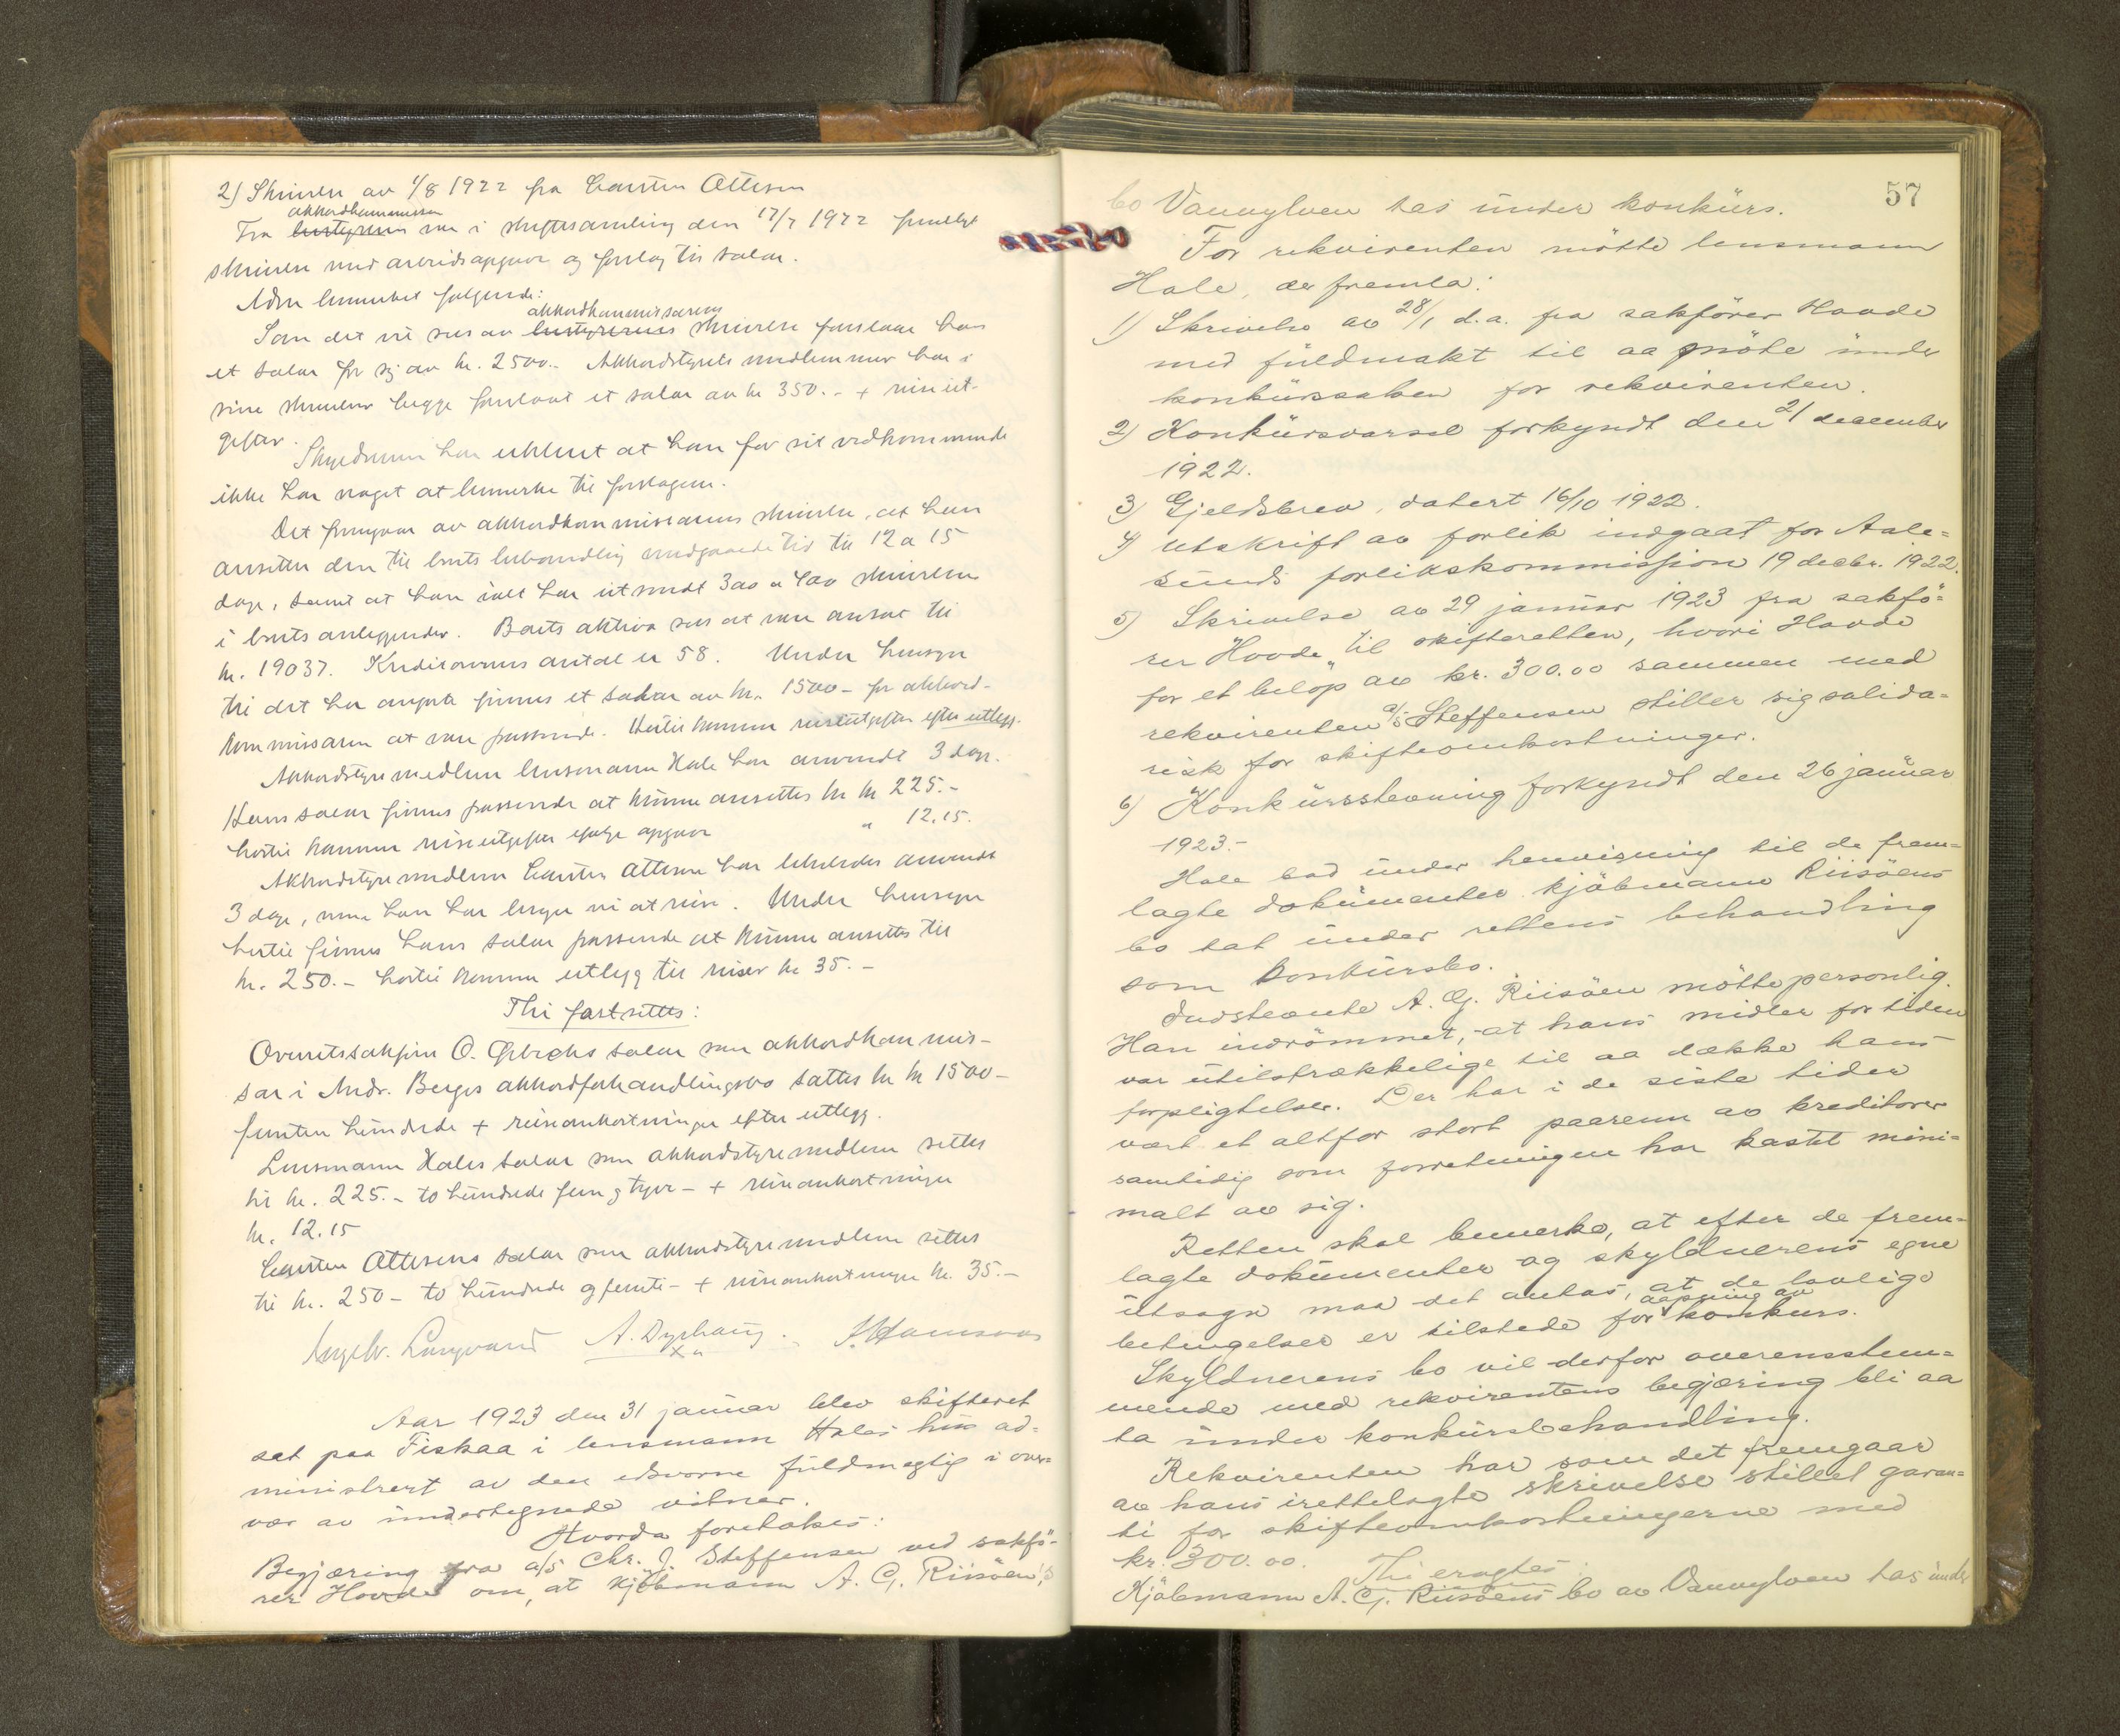 2) Skrivelse av 1/8 1922 fra Carsten Ottesen
akkordkommissæren
Fra bestyreren var i skiftesamling den 17/7 1922 fremlagt
skrivelse med arbeidsopgave og forslag til salær.
Adm. bemerket følgende:
akkordkommissærens
Som det vil sees av bestyrerens skrivelse foreslaar han
et salær for sig av kr. 2500.- Akkordstyrets medlemmer har i
sine skrivelser begge foreslaat et salær av kr 350.- + reiseut-
gifter.
Skyldneren har uttalt at han for sit vedkommende
ikke har noget at bemerke til forslagene.
Det fremgaar av akkordkommissærens skrivelse, at han
ansetter den til boets behandling medgaaede tid til 12 a 15
dage, samt at han ialt har utsendt 300 a 400 skrivelser
i boets anliggender. Boets aktiva sees at være ansat til
kr. 19037. Kreditorernes antal er 58. Under hensyn
til det her anførte finnes et salær av kr. 1500 - for akkord-
kommissæren at være passende. Hertil kommer reiseutgifter efter utlegg.
Akkordstyremedlem lensmann Hale har anvendt 3 dage.
Hans salær finnes passende at kunne ansettes til kr 225.-
hertil kommer reiseutgifter ifølge opgave " 12.15.
Akkordstyremedlem Carsten Ottesen har likeledes anvendt
3 dage, men han har lengre vei at reise. Under hensyn
hertil finnes hans salær passende at kunne ansettes til
kr. 250.- hertil kommer utlegg til reiser kr 35.-
Thi fastsettes:
Overretssakfører O. Giskes salær som akkordkommis-
sær i Andr. Berges akkordforhandlingsbo sættes til kr 1500 -
femten hundrede + reiseomkostninger efter utlegg.
Lensmann Hales salær som akkordstyremedlem settes
til kr. 225.- to hundrede fem og tyve - + reiseomkostninger
kr. 12.15
Carsten Ottesens salær som akkordstyremedlem settes
til kr. 250 - to hundrede og femti - + reiseomkostninger kr. 35.-
A. Dyrhaug.
Aar 1923 den 31 januar blev skifteret
sat paa Fiskaa i lensmann Hales hus ad-
ministrert av den edsvorne fuldmægtig i over-
vær av undertegnede vitner.
Hvorda foretokes:
Begjæring fra a/s Chr. J. Steffensen ved sakfø-
rer Hovde om, at kjøbmann A. G. Riisøen's
57
bo Vannylven tas under konkurs.
For rekvirenten møtte lensmann
Hale, der fremla:
1) Skrivelse av 28/1 d.a. fra sakfører Hovde
med fuldmakt til aa møte under
konkurssaken for rekvirenten.
2) Konkursvarsel forkyndt den 21 december
1922.
3) Gjeldsbrev, datert 16/10 1922.
4) Utskrift av forlik indgaat for Aale-
sunds forlikskommission 19 decbr. 1922.
5) Skrivelse av 29 januar 1923 fra sakfø-
rer Hovde til skifteretten, hvori Hovde
for et beløp av kr. 300.00 sammen med
rekvirenten a/s Steffensen stiller sig solida-
risk for skifteomkostninger.
6) Konkursstevning forkyndt den 26 januar
1923.-
Hale bad under henvisning til de frem-
lagte dokumenter kjøbmann Riisøens
bo tat under rettens behandling
som konkursbo.
Indstevnte A. G. Riisøen møtte personlig.
Han indrømmet, at hans midler for tiden
var utilstrækkelige til aa dække hans
forpligtelser. Der har i de siste tider
vært et altfor stort paarenn av kreditorer
samtidig som forretningen har kastet mini-
malt av sig.
Retten skal bemerke, at efter de frem-
lagte dokumenter og skyldnerens egne
utsagn maa det antas, at de lovlige
aapning av
betingelser er tilstede for konkurs.
Skyldnerens bo vil derfor overensstem-
mende med rekvirentens begjæring bli aa
ta under konkursbehandling.
Rekvirenten har som det fremgaar
av hans irettelagte skrivelse stillet garan-
ti for skifteomkostningerne med
kr. 300.00.
Thi eragtes:
Kjøbmann A. G. Riisøens bo av Vannylven tas under